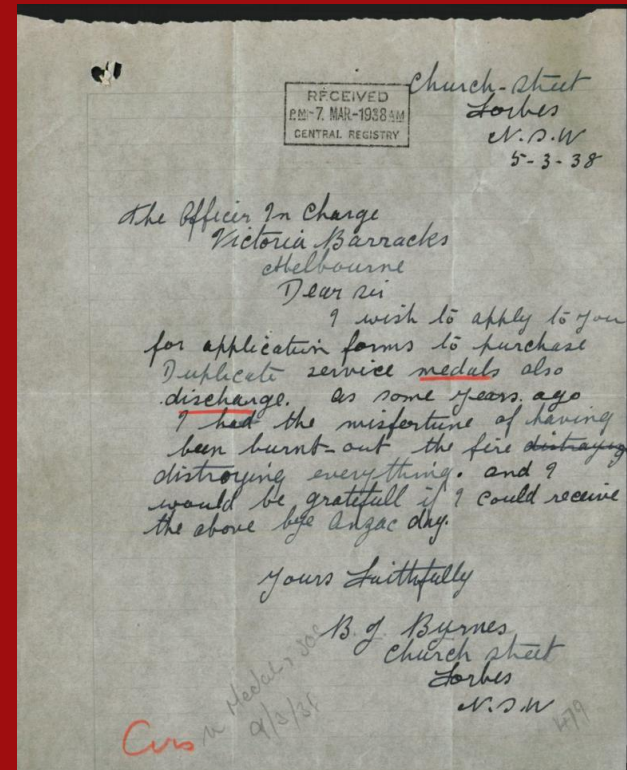 Church-street
Forbes
N.S.W
5-3-38
RECEIVED
PM-7. MAR-1938 AM
CENTRAL REGISTRY
The Officer In Charge
Victoria Barracks
Melbourne
Dear sir
I wish to apply to you
for application forms to purchase
Duplicate service medals also
discharge. as some years. ago
I had the misfortune of having
been burnt-out the fire distroying
distroying everything. and I
would be gratefull if I could receive
the above bye Anzac day.
Yours Faithfully
B. J. Byrnes
Church street
Forbes
N.S.W
Medals
9/3/38
479